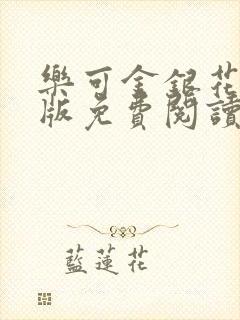 樂可金銀花
版免費閱讀
藍蓮花